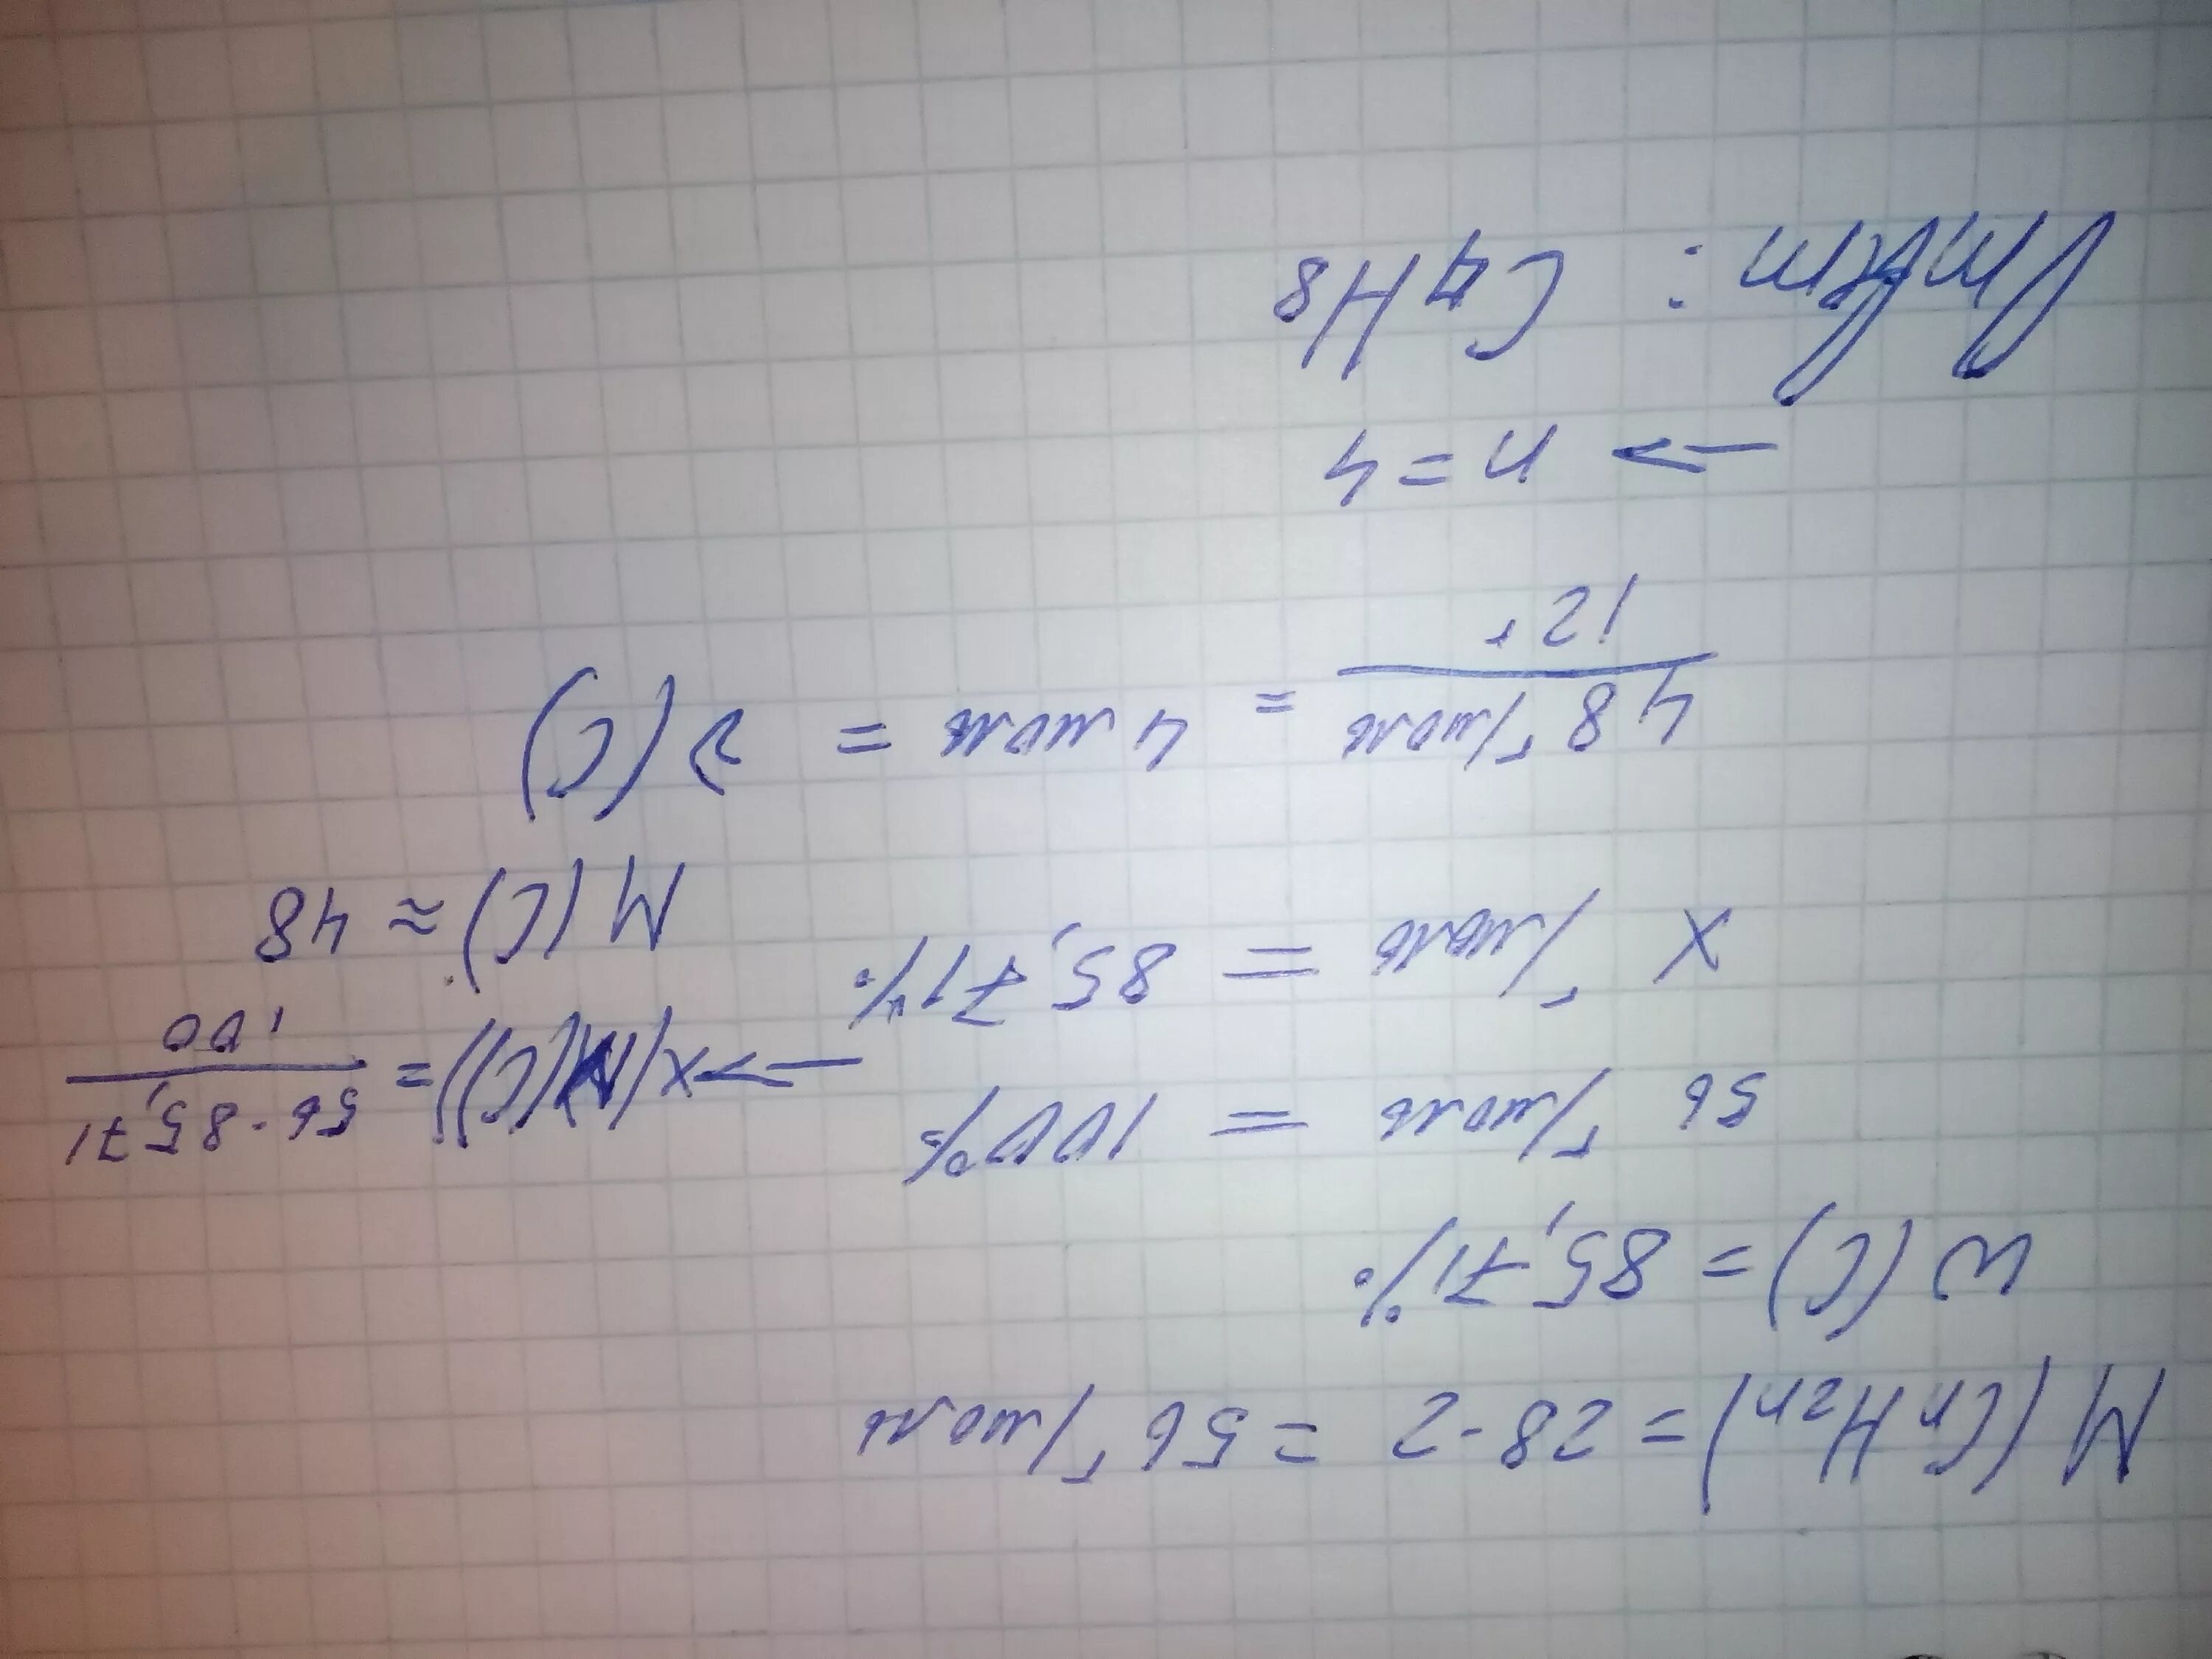 M(CnH2n) = 28·2 = 56 г/моль
W(C) = 85,71%
56 г/моль = 100%
x г/моль = 85,71%
→ x(M(C)) = 56·85,71 / 100
M(C) ≈ 48
48 г/моль / 12 г = 4 моль = ν(C)
→ n = 4
Ответ: C4H8